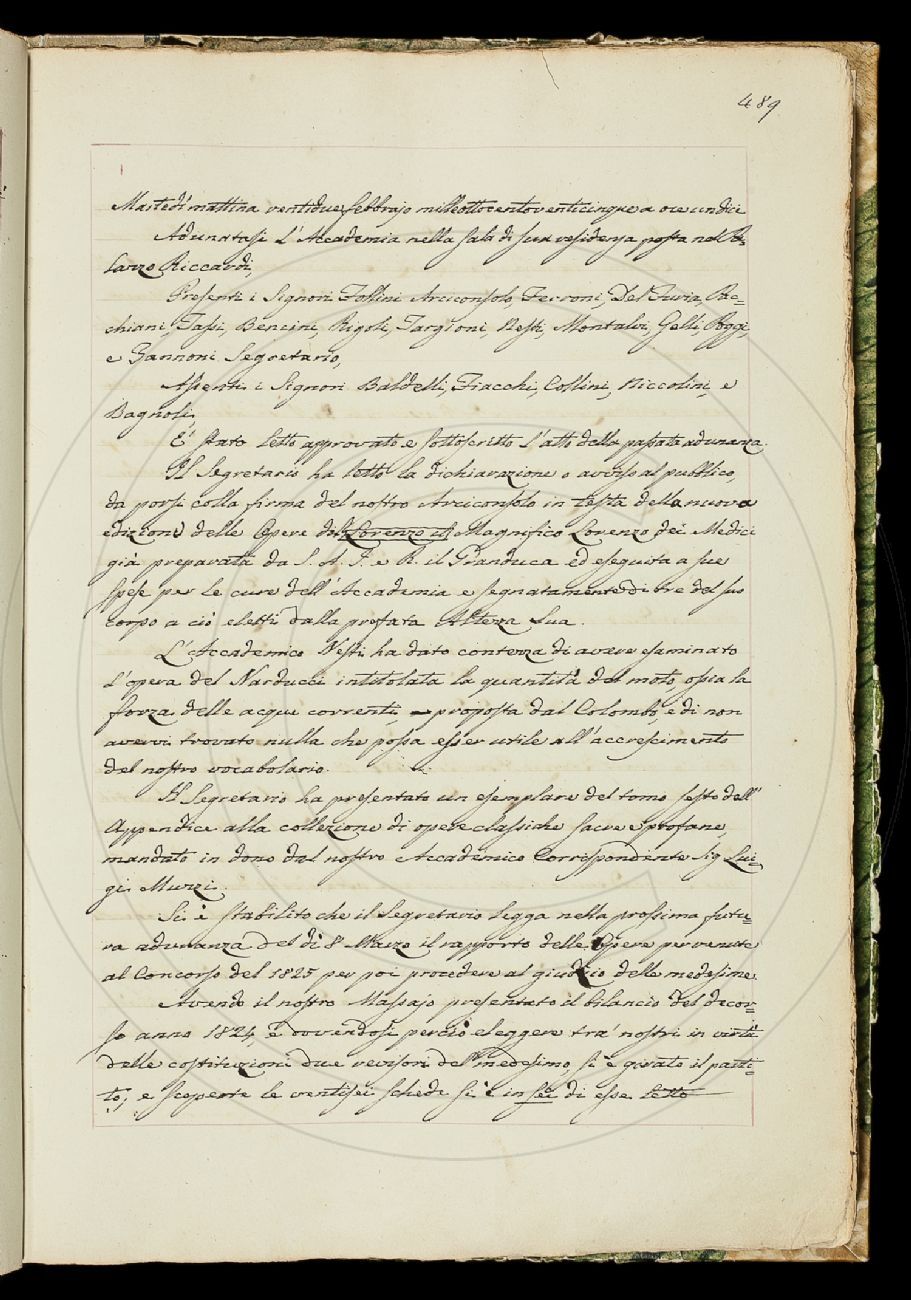 489
Martedì mattina ventidue febbrajo milleottocentoventicinque a ore undici
Adunatasi l'Accademia nella sala di sua residenza posta nel Pa=
lazzo Riccardi,
Presenti i Signori Follini Arciconsolo, Ferroni, Del Furia, Pac=
chiani, Tassi, Bencini, Rigoli, Targioni, Nesti, Montalvi, Gelli, Poggi,
e Zannoni Segretario,
Assenti i Signori Baldelli, Fiacchi, Collini, Niccolini, e
Bagnoli,
E' stato letto approvato e sottoscritto l'atto della passata adunanza.
Il Segretario ha letto la dichiarazione o avviso al pubblico,
da porsi colla firma del nostro Arciconsolo in testa della nuova
edizione delle Opere del Lorenzo il Magnifico Lorenzo dei Medici
già preparata da S. A. I. e R. il Granduca ed eseguita a sue
spese per le cure dell'Accademia e segnatamente di tre del suo
corpo a ciò eletti dalla prefata Altezza Sua.
L'Accademico Nesti ha dato contezza di avere esaminato
l'opera del Narducci intitolata la quantità del moto, ossia la
forza delle acque correnti, proposta dal Colombo, e di non
avervi trovato nulla che possa esser utile all'accrescimento
del nostro vocabolario.
Il Segretario ha presentato un esemplare del tomo sesto dell'
Appendice alla collezione di opere classiche sacre e profane,
mandato in dono dal nostro Accademico Corrispondente Sig Lui=
gi Muzzi.
Si è stabilito che il Segretario legga nella prossima futu=
ra adunanza del dì 8 Marzo il rapporto delle Opere pervenute
al Concorso del 1825 per poi procedere al giudizio delle medesime.
Avendo il nostro Massajo presentato il bilancio del decor=
so anno 1824, e dovendosi perciò eleggere tra' nostri in virtù
delle costituzioni due revisori del medesimo, si è girato il parti=
to; e scoperte le ventisei schede si è in sei di esse letto